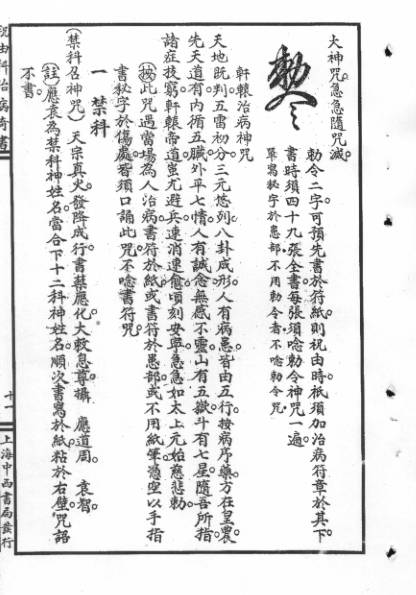 大神咒。急急隨咒滅。
勅令
勅令二字。可預先書於符紙。則祝由時。祇須加治病符章於其下。
書時須四十九張全書。每張須唸勅令神咒一遍。
單寫秘字於患部。不用勅令者。不唸勅令咒。
軒轅治病神咒
天地既判。五雷初分。三元悠列。八卦成形。人有病患。皆由五行。按病序藥。方在皇農。
先天道有。內循五臟。外平七情。人有誠念。無感不靈。山有五嶽。斗有七星。隨吾所指。
諸症技窮。軒轅帝道。蚩尤避兵。速消速愈。頃刻安寧。急急如太上元始慈悲勅。
(按)此咒遇當場為人治病。書符於紙。或書符於患部。或不用紙筆。憑空以手指
書秘字於傷處。皆須口誦此咒。不唸書符咒。
一 禁科
(禁科召神咒)天宗真火。發降成行。書禁應化。大教急尊攝 應道周 袁智
(註)應袁為禁科神姓名。當合下十二科神姓名。順次書寫於紙。粘於右壁。咒詔
不書。
祝由科治病奇書
十一
上海中西書局發行